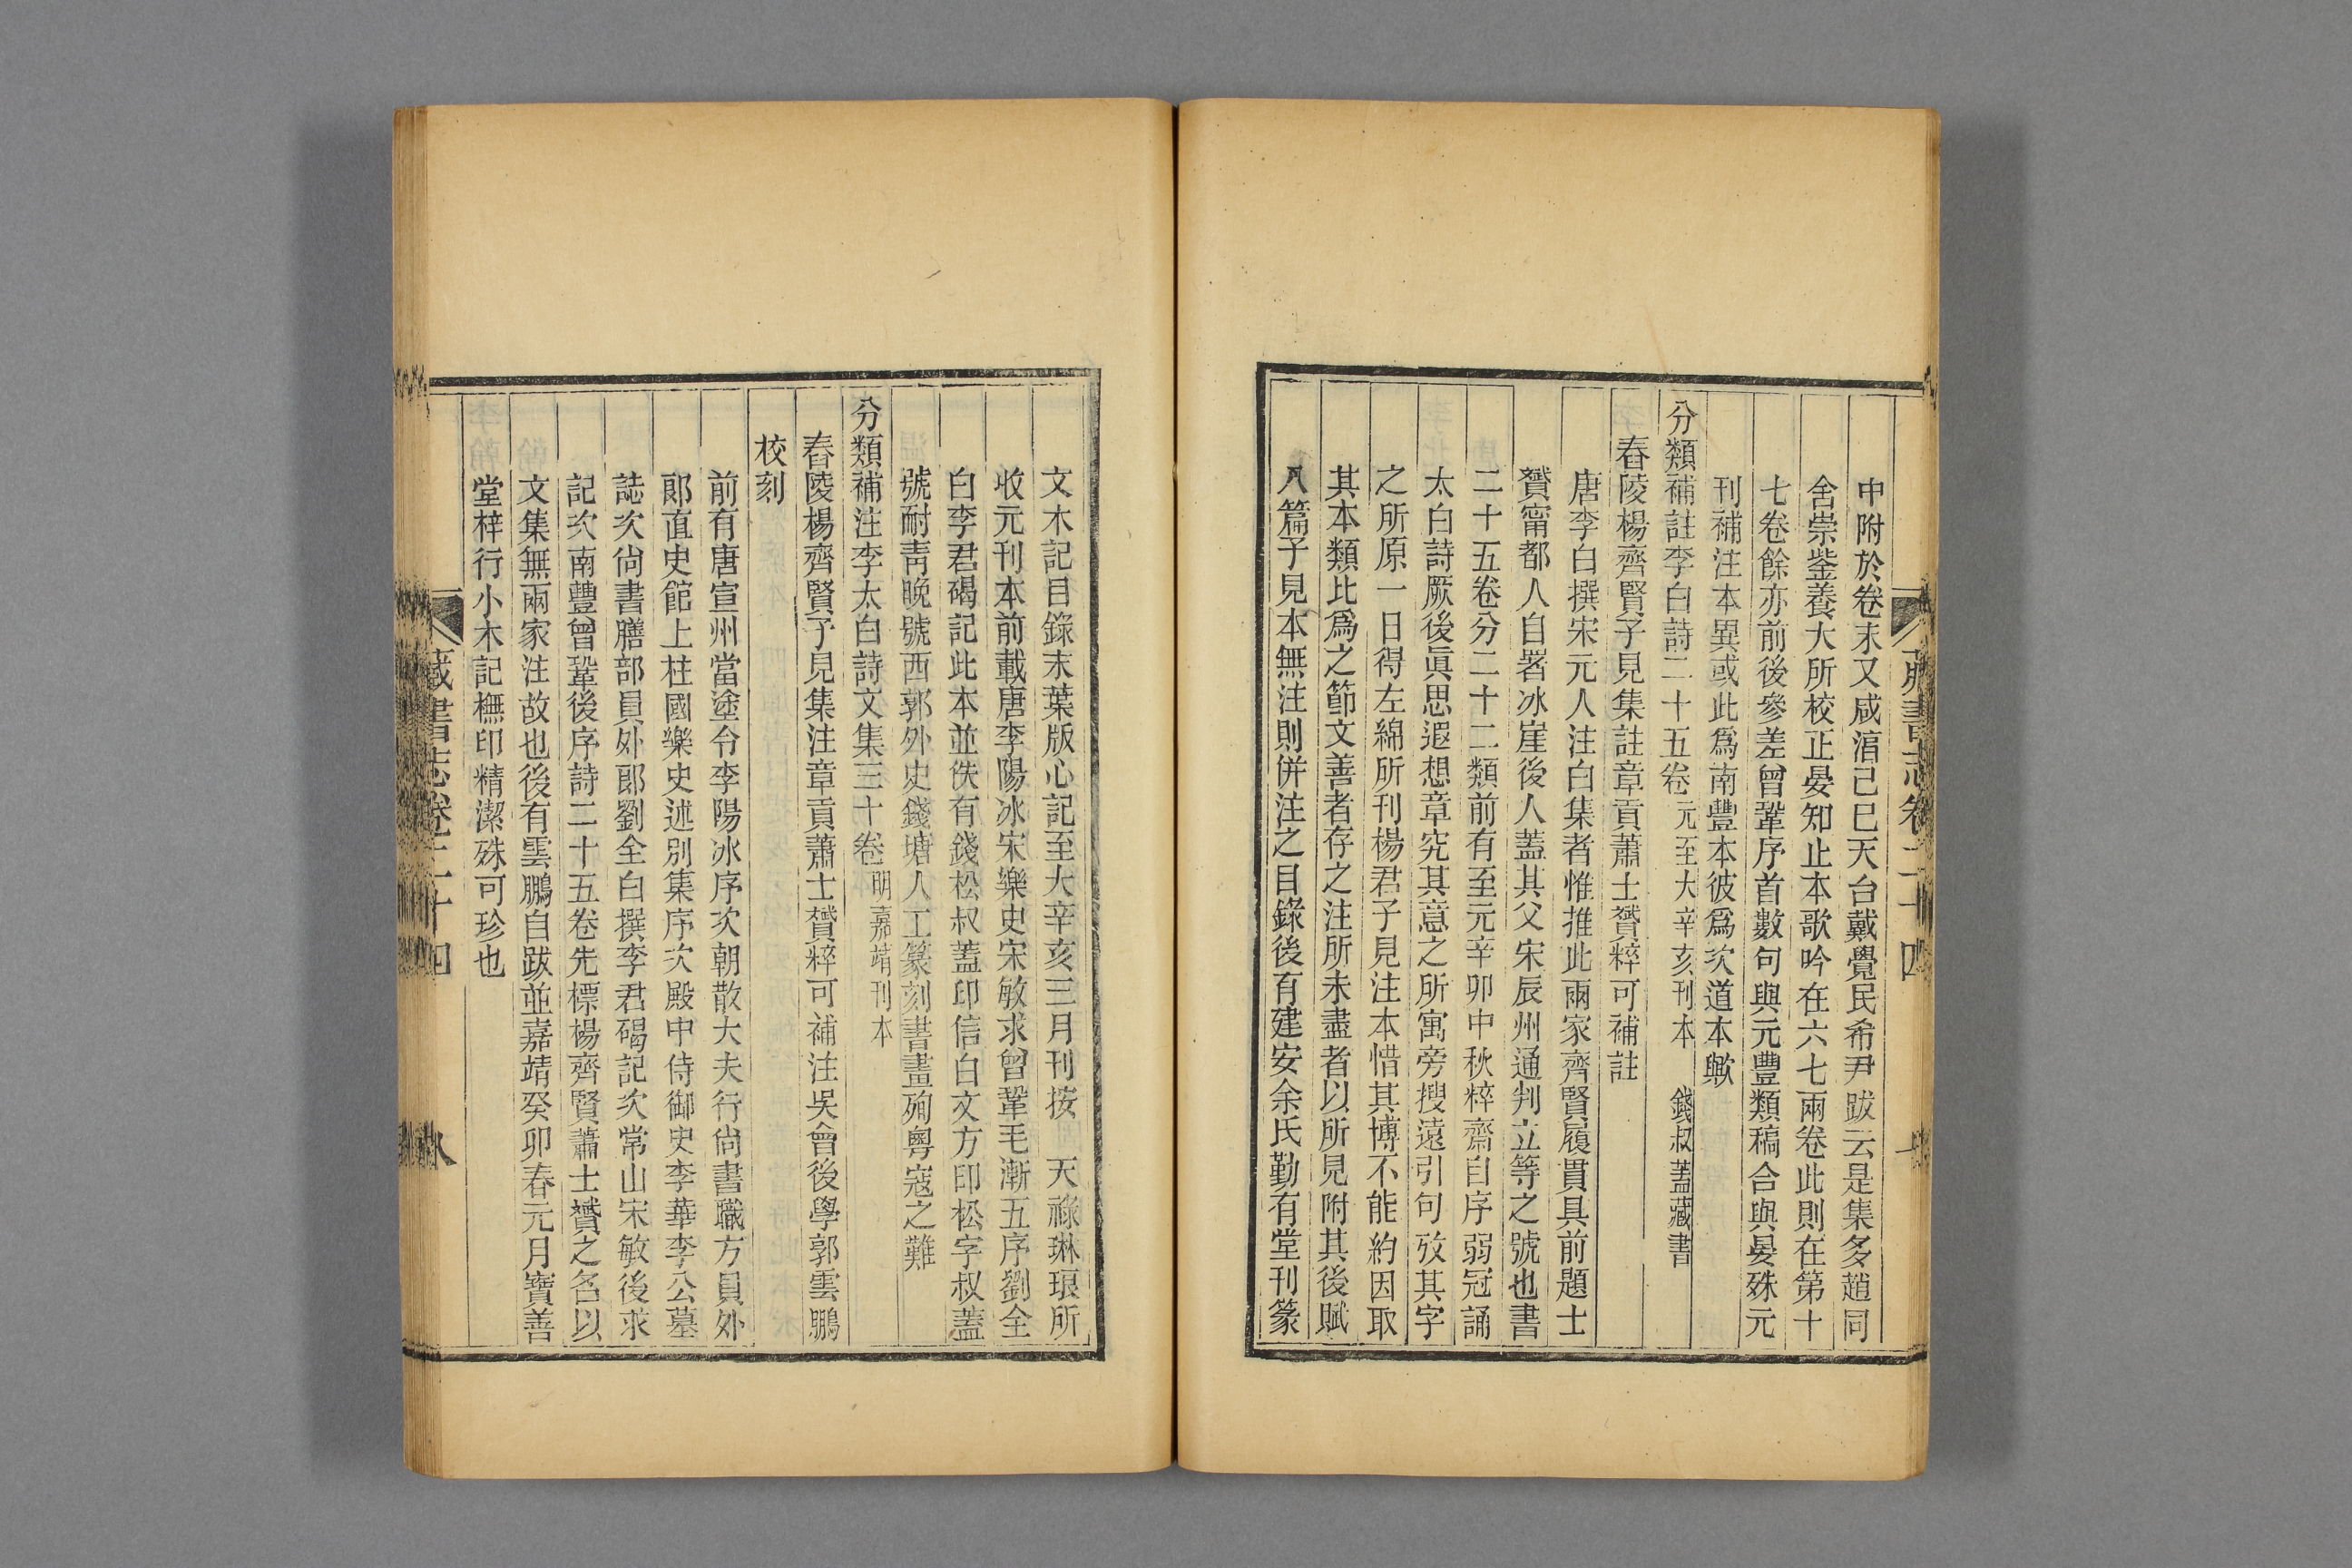 中附於卷末又咸湻己巳天台戴覺民希尹跋云是集多趙同
舍崇鉴養大所校正晏知止本歌吟在六七兩卷此則在第十
七卷餘亦前後參差曾鞏序首數句與元豐類稿合與晏殊元
刊補注本異或此爲南豐本彼爲次道本歟
分類補註李白詩二十五卷 元至大辛亥刊本 錢叔蓋藏書
舂陵楊齊賢子見集註章貢蕭士贇粹可補註
唐李白撰宋元人注白集者惟推此兩家齊賢履貫具前題士
贇甯都人自署冰崖後人蓋其父宋辰州通判立等之號也書
二十五卷分二十二類前有至元辛卯中秋粹齋自序弱冠誦
太白詩厥後眞思遐想章究其意之所寓旁搜遠引句攷其字
之所原一日得左綿所刊楊君子見注本惜其博不能約因取
其本類此爲之節文善者存之注所未盡者以所見附其後賦
八篇子見本無注則併注之目錄後有建安余氏勤有堂刊篆
藏書志卷二十四
文木記目錄末葉版心記至大辛亥三月刊按 天祿琳琅所
收元刊本前載唐李陽冰宋樂史宋敏求曾鞏毛漸五序劉全
白李君碣記此本並佚有錢松叔蓋印信白文方印松字叔蓋
號耐靑晚號西郭外史錢塘人工篆刻書畫殉粵寇之難
分類補注李太白詩文集三十卷 明嘉靖刊本
舂陵楊齊賢子見集注章貢蕭士贇粹可補注吳會後學郭雲鵬
校刻
前有唐宣州當塗令李陽冰序次朝散大夫行尙書職方員外
郞直史館上柱國樂史述別集序次殿中侍御史李華李公墓
誌次尙書膳部員外郞劉全白撰李君碣記次常山宋敏後求
記次南豐曾鞏後序詩二十五卷先標楊齊賢蕭士贇之名以
文集無兩家注故也後有雲鵬自跋並嘉靖癸卯春元月寶善
堂梓行小木記橅印精潔殊可珍也
藏書志卷二十四